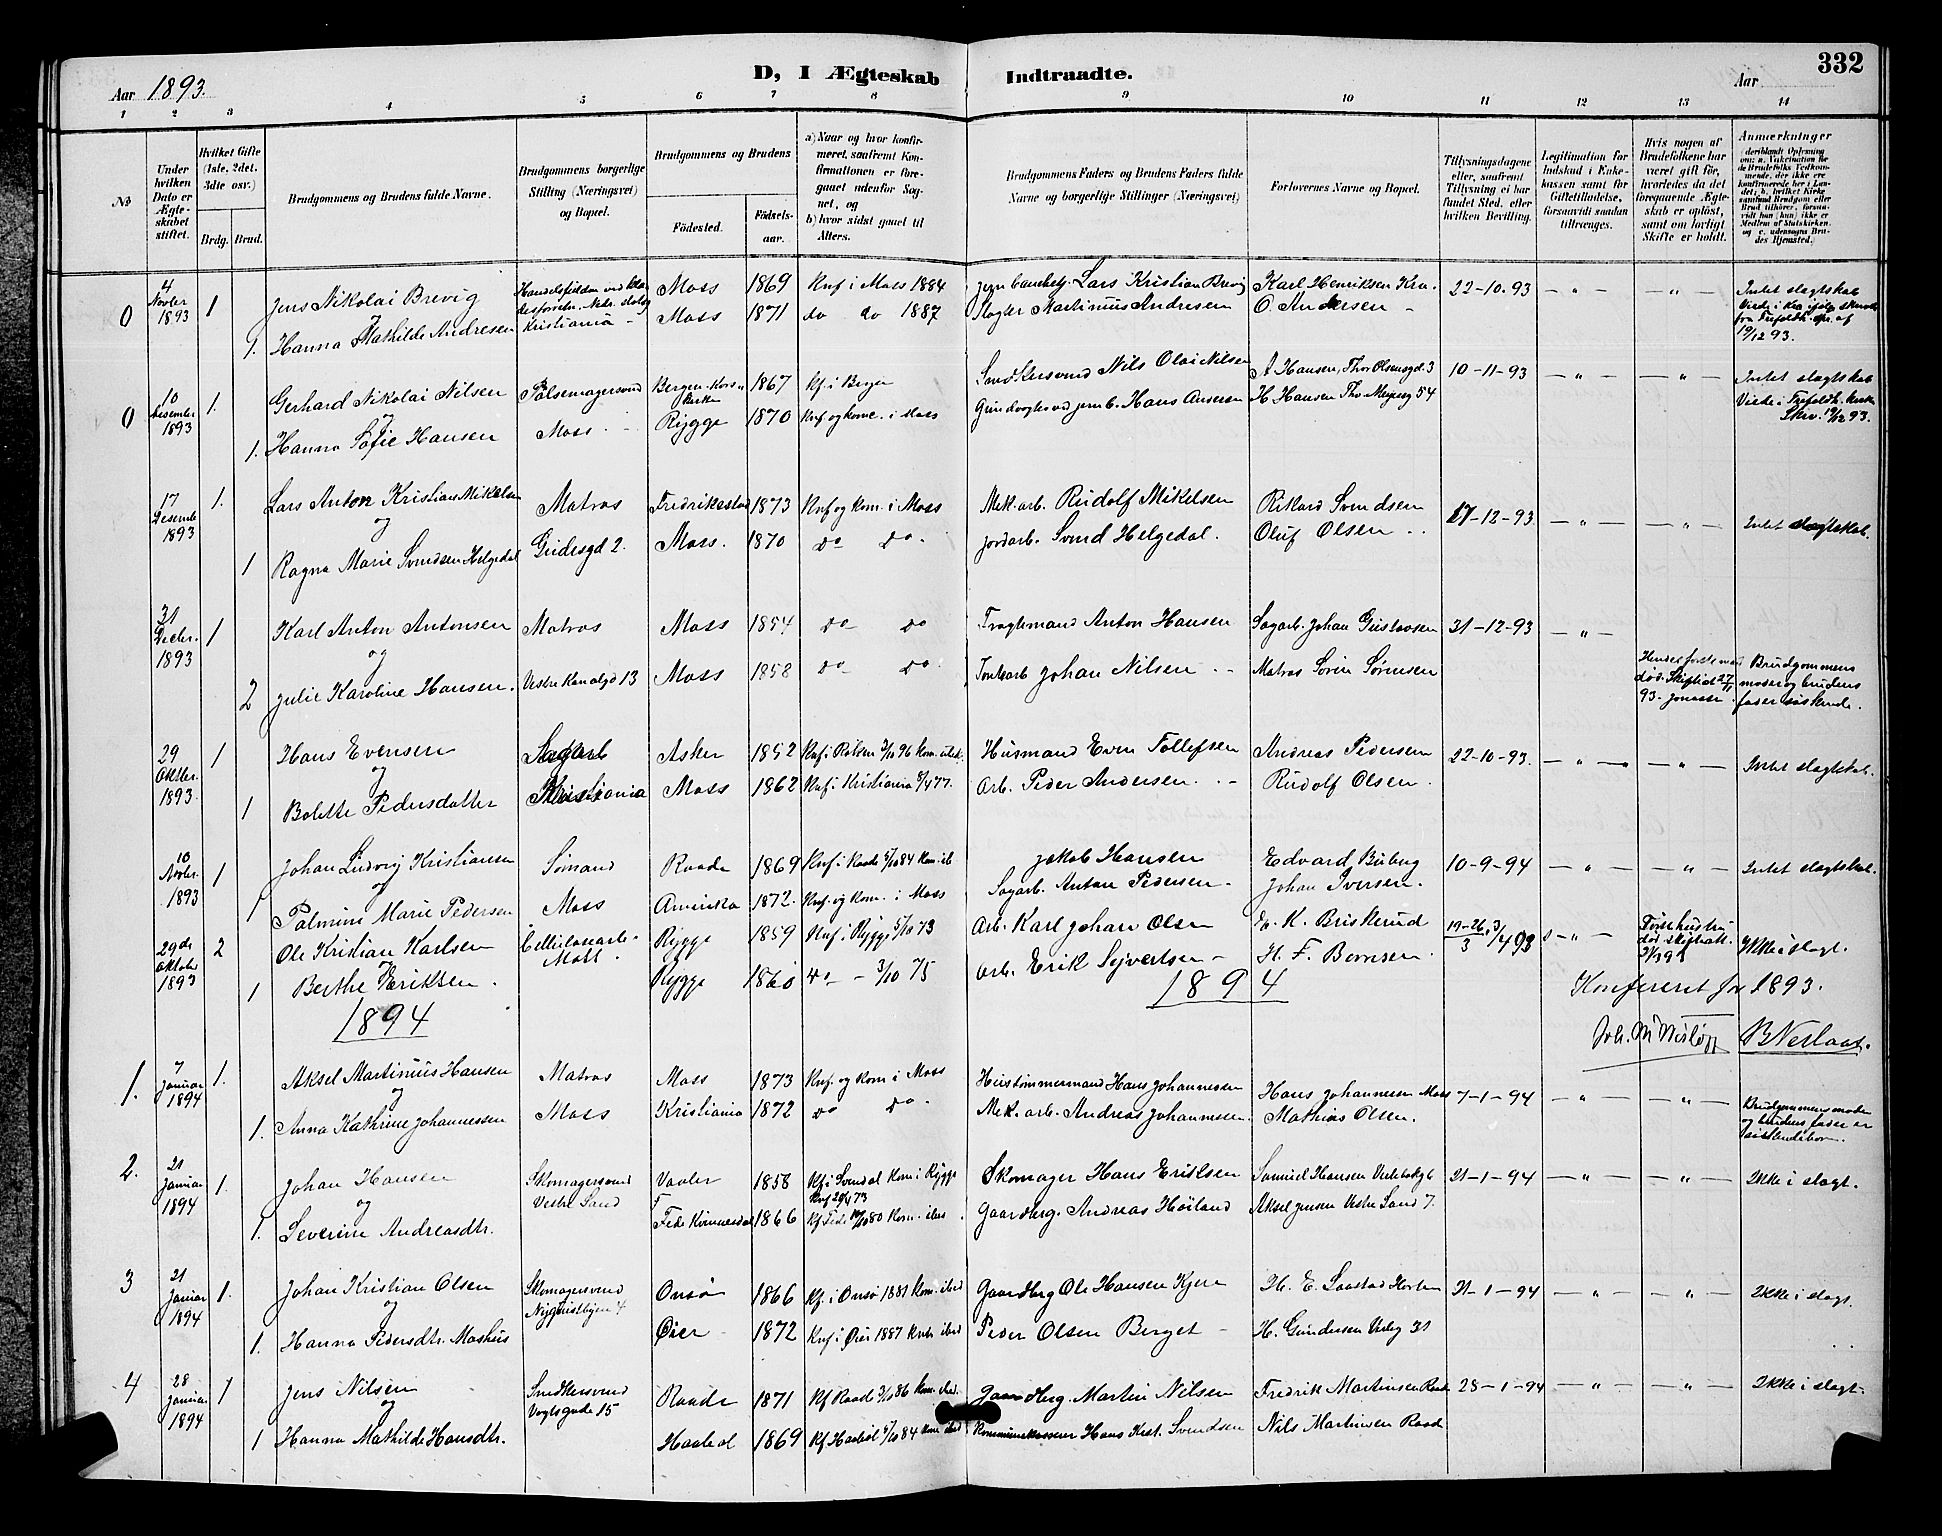 332
D, I Ægteskab Indtraadte.
Aar 1893.
Aar
1 2 3 4 5 6 7 8 9 10 11 12 13 14
No
Under hvilken Dato er Ægteskabet stiftet.
Hvilket Gifte (1ste, 2det, 3dte osv.)
Brdg. Brud.
Brudgommens og Brudens fulde Navne.
Brudgommens borgerlige Stilling (Næringsvei) og Bopæl.
Brudgommens og Brudens
Fødested. Fødselsaar.
a) Naar og hvor konfirmeret, saafremt Konfirmationen er foregaaet udenfor Sognet, og
b) hvor sidst gaaet til Alters.
Brudgommens Faders og Brudens Faders fulde Navne og borgerlige Stillinger (Næringsvei)
Forlovernes Navne og Bopæl.
Tillysningsdagene eller, saafremt Tillysning ei har fundet Sted, efter hvilken Bevilling.
Legitimation for Indskud i Enkekassen samt for Giftetilladelse, forsaavidt saadan tiltrænges.
Hvis nogen af Brudefolkene har været gift før, hvorledes da det foregaaende Ægteskab er opløst, samt om lovligt Skifte er holdt.
Anmærkninger
0 4 Novber 1893 1 Jens Nikolai Brevig Moss 1869 Knf i Moss 1884 Lars Kristian Brevig Karl Henriksen Kra. 22-10-93 — " — — " — Intet slagtskab
Kristiania
1. Hanna Mathilde Andresen Moss 1871 do do 1887 Slagter Martinius Andresen O. Andersen 19/12 93.
0 10 Desember 1893 1. Gerhard Nikolai Nilsen Pølsemagersvend Bergen Kors Kirke 1867 Kf. i Bergen Snedkersvend Nils Olai Nilsen A Hansen, Thor Olsensgd. 3 10-11-93 — " — — " — Intet slagtskab
og
1. Hanna Sofie Hansen Moss Rygge 1870 Knf og kom. i Moss Hans Andersen H. Hansen 54 Skriv. 19/12 93.
17 Desemb 1893 1. Lars Anton Kristian Mikelsen Matros Fredrikstad 1873 Knf og kom. i Moss Mek. arb. Rudolf Mikelsen Rikard Svendsen 17-12-93 — " — — " — Intet slagtskab.
og
1 Ragna Marie Svendsen Helgedal Gudesgd 2. Moss. 1870 do do. Jordarb. Svend Helgedal. Oluf Olsen
31 Decbr. 1893 1 Karl Anton Antonsen Matros Moss 1854 do do Anton Hansen Sagarb. Johan Gustavsen 31-12-93 — " —
og
2 Julie Karoline Hansen. Vestre Kanalgd 13 Moss 1858 do do Johan Nilsen Matros Sørin Sørensen Hendes første mand død. Skiftet 27/11 93. Brudgommens moder og brudens fader søskende.
29 Oktber. 1893. 1 Hans Evensen Sagarb Asker 1852 Husmand Even Tollefsen Andreas Pedersen 22-10-93. — " — — " — Intet slagtskab.
og
1 Bolette Pedersdatter Kristiania Moss 1862 Knf. i Kristiania 8/4 77. Arb. Peder Andersen Rudolf Olsen.
10 Novber. 1893 1 Johan Ludvig Kristiansen Sømand Raade 1869 Knf. i Raade 5/10 84 Jakob Hansen Edvard Buberg 10-9-94 — " — — " — Intet slagtskab.
og
1 Palmine Marie Pedersen Moss Amerika 1872. Knf. og kom. i Moss Sagarb. Anton Pedersen Johan Iversen.
29de Oktober 1893 2 Ole Kristian Karlsen Cellulosearb. Moss Rygge 1859 Knf i Rygge 5/10 73 Arb. Karl Johan Olsen K. Briskerud 19-26/3 — " — Første hustru død Ikke i slagt.
og
1 Berthe Eriksen. Rygge 1860 do — 3/10 75 Arb. Erik Sejvertsen H. F. Berntsen.
1894 1894 Konfereret for 1893.
1. 7 Januar 1894 1. Aksel Martinius Hansen Matros Moss 1873 Knf. og kom i Moss Hustømmermand Hans Johannesen Hans Johannesen Moss 7-1-94 — " — — " —
og
1. Anna Kathrine Johannessen Moss Kristiania 1872 do do. Mek. arb. Andreas Johannesen. Mathias Olsen. Brudgommens moder og brudens fader er søskendebørn.
2. 21 Januar 1894 1. Johan Hansen Skomagersvend Vestre Sand Vaaler 1858 Kf. i Svendal kom. i Rygge Skomager Hans Eriksen Samuel Hansen 21-1-94 — " — — " — Ikke i slagt.
og
1. Severine Andreasdtr. 1866 Gaardbrg. Andreas Høiland Aksel Jensen Vestre Sand 7.
3 21 Januar 1894 1. Johan Kristian Olsen Skomagersvend Onsø 1866 Kf. i Onsø 1881 kom. ibid Gaardbrg Ole Hansen Kjern H. E. Saastad Horten 21-1-94 — " — — " — Ikke i slagt.
og
1. Hanna Pedersdtr. Moshus Øier 1872 Knf. i Øier 1887 kom ibid Peder Olsen Berget H. Gundersen Verlg 31
4 28 Januar 1894 1 Jens Nilsen Snedkersvend Vogtsgade 15 Raade 1871 Kf Raade 3/10 86 kom. ibid. Gaardbrg. Martin Nilsen Fredrik Martinsen Raade 28-1-94 — " — — " — Ikke i slagt.
og
1 Hanna Mathilde Hansdtr. Haabøl 1869 Kf Haabøl 5/10 84 kom ibid Hans Krist. Svendsen Nils Martinsen Raade